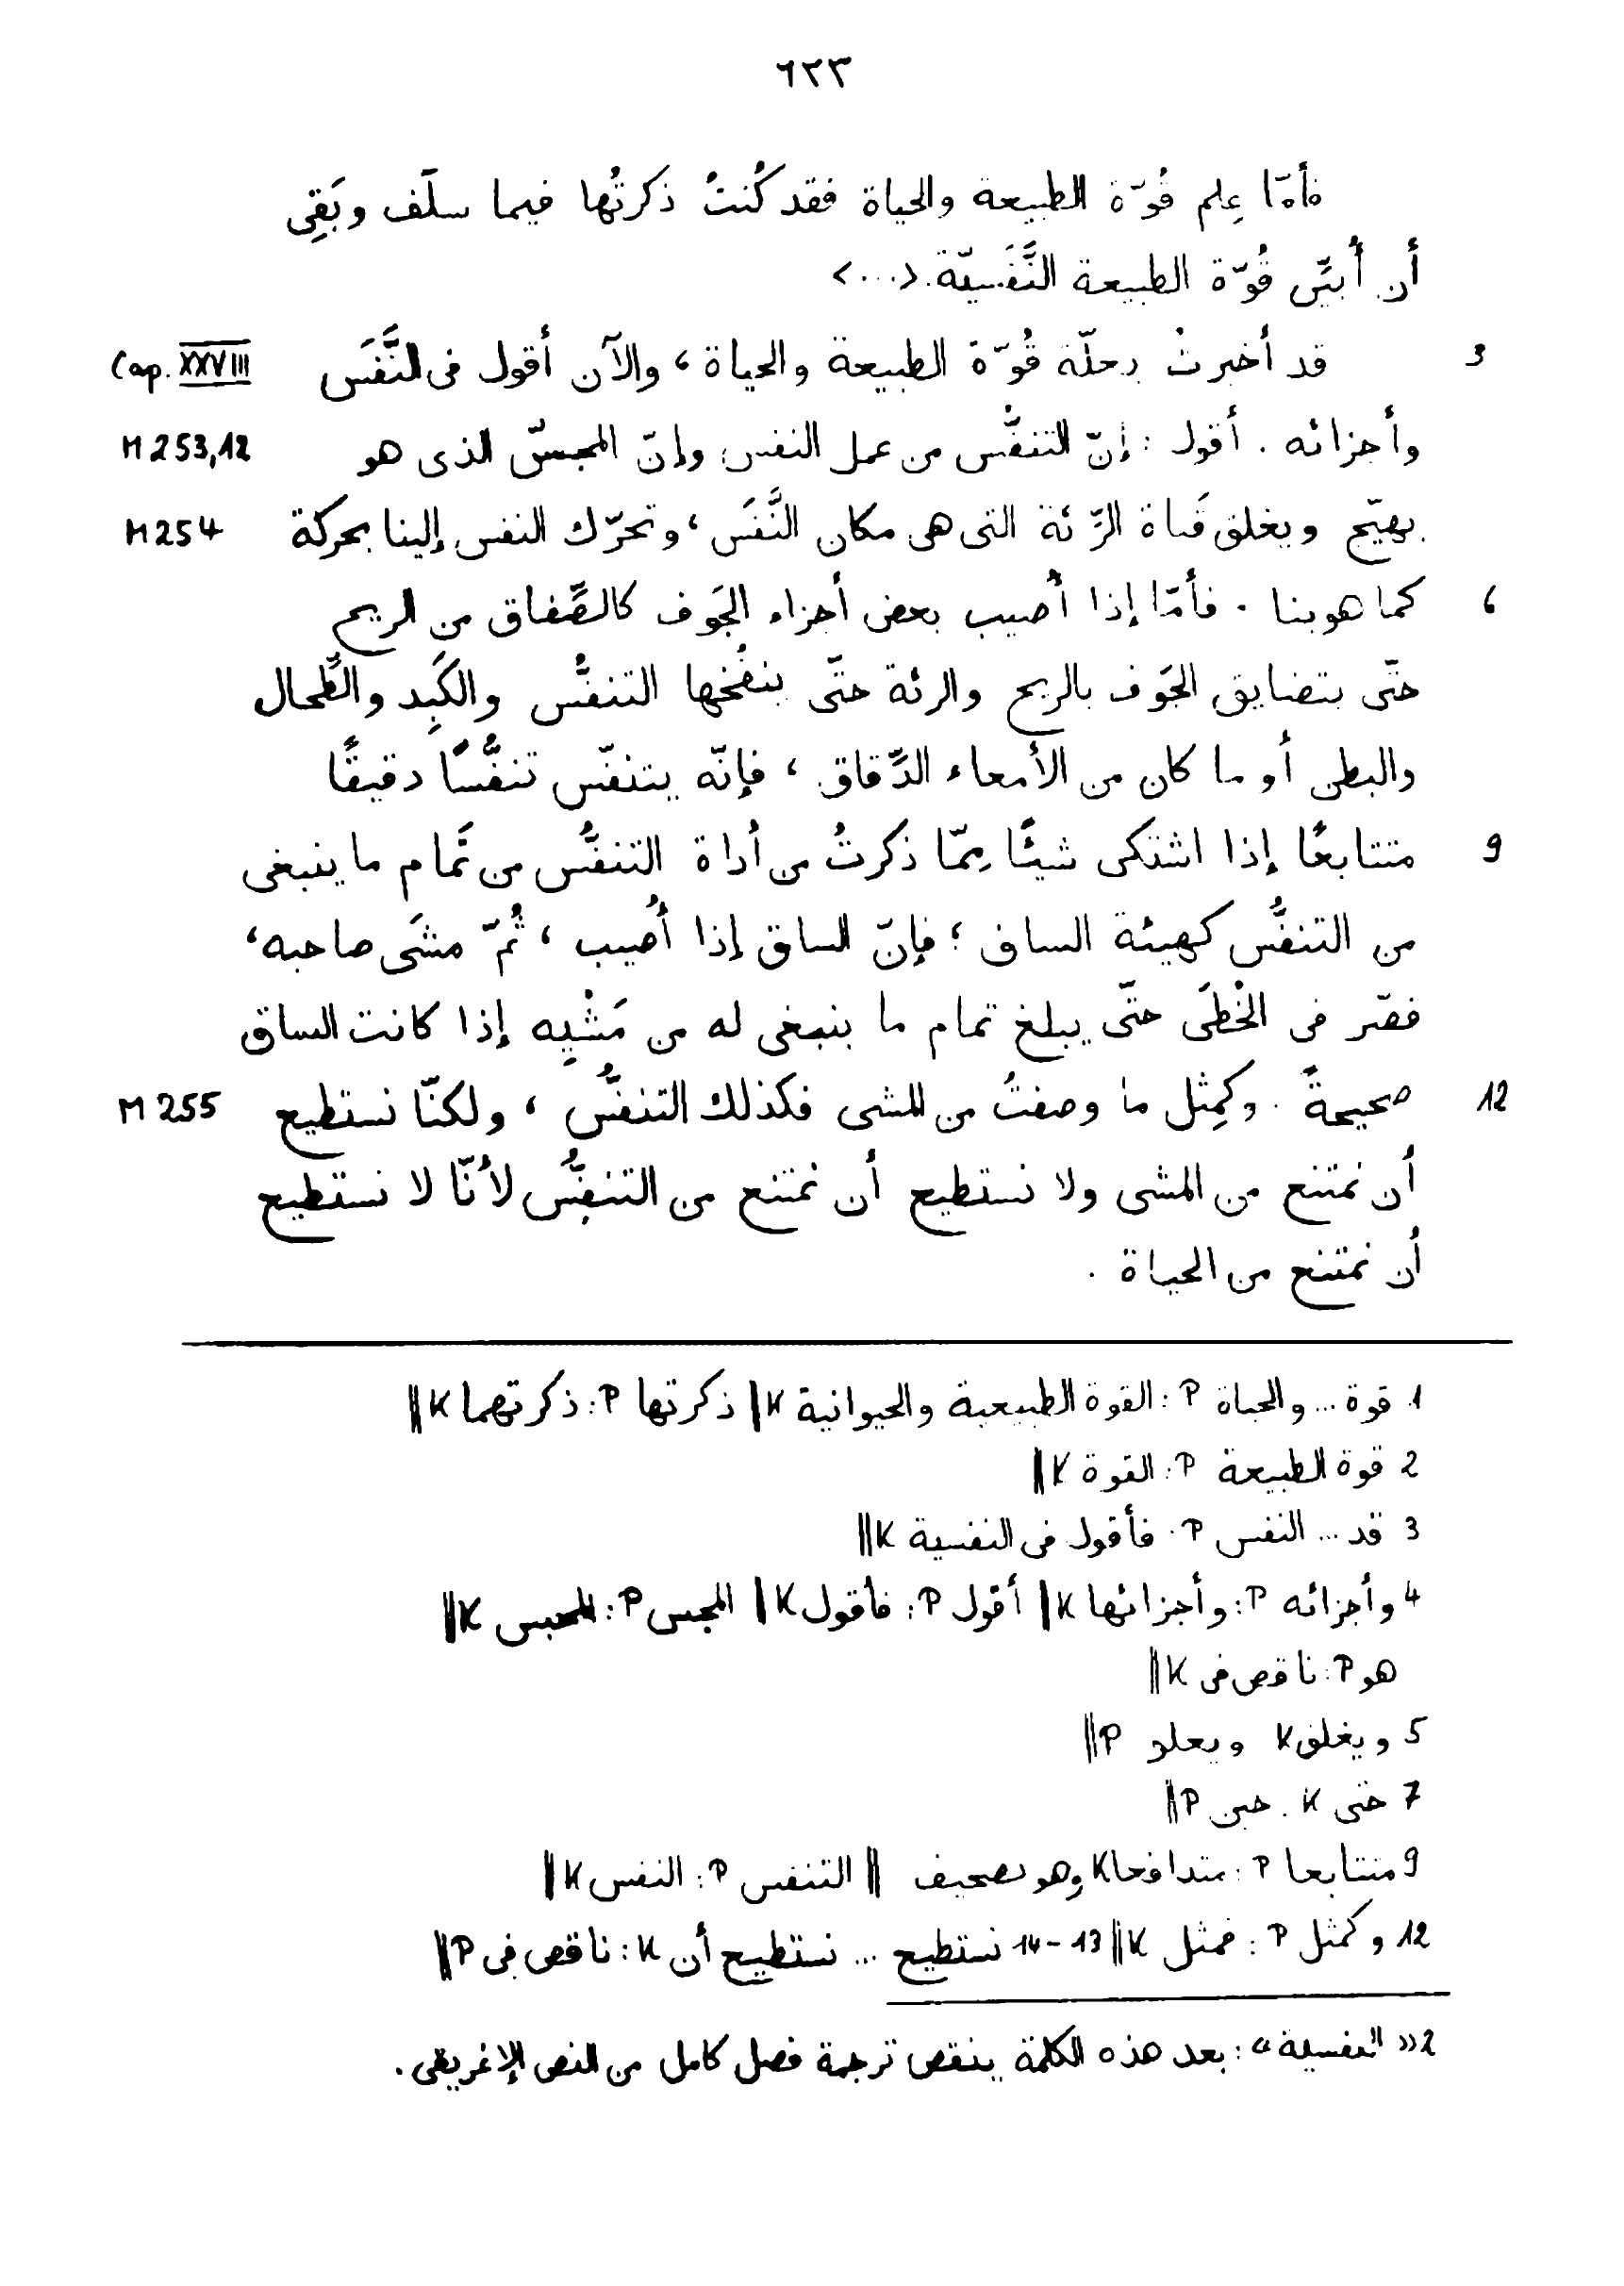 ٦٢٣
فأمّا عِلم قُوّة الطبيعة والحياة فقد كُنتُ ذكرتُها فيما سلَف وبَقِى
أن أُبيِّن قُوّة الطبيعة النَّفَسيّة <...>
3 قد أخبرتُ بعلّة قُوّة الطبيعة والحياة ، والآن أقول فى النَّفَس Cap. XXVIII
وأجزائه . أقول : إنّ التنفُّس من عمل النفس وإنّ المجسّ الذى هو M 253,12
يهيّج ويغلق قَناة الرِّئة التى هى مكان النَّفَس ، وتحرّك النفس إلينا بحركة M 254
6 كما هو بنا . فأمّا إذا أُصيب بعض أجزاء الجَوف كالصِّفاق من الريح
حتّى يتضايق الجَوف بالريح والرئة حتّى ينفُخها التنفُّس والكَبِد والطِّحال
والبطن أو ما كان من الأمعاء الدِّقاق ، فإنّه يتنفّس تنفُّسًا دقيقًا
9 متتابعًا إذا اشتكى شيئًا مِمّا ذكرتُ من أداة التنفُّس من تَمام ما ينبغى
من التنفُّس كهيئة الساق ؛ فإنّ الساق إذا أُصيب ، ثُمّ مشَى صاحبه ،
قصّر فى الخُطَى حتّى يبلغ تمام ما ينبغى له من مَشْيِه إذا كانت الساق
12 صحيحةً . وكمِثل ما وصفتُ من المشى فكذلك التنفُّس ، ولكنّا نستطيع M 255
أن نمتنع من المشى ولا نستطيع أن نمتنع من التنفُّس لأنّا لا نستطيع
أن نمتنع من الحياة .
1 قوة ... والحياة P : القوة الطبيعية والحيوانية K || ذكرتها P : ذكرتهما K ||
2 قوة الطبيعة P : القوة K ||
3 قد ... النفس P : فأقول فى النفسية K ||
4 وأجزائه P : وأجزائها K || أقول P : فأقول K || المجس P : المحبس K ||
هو P : ناقص فى K ||
5 ويغلق K ويعلو P ||
7 حتى K : حين P ||
9 متتابعا P : متدافعا K وهو تصحيف || التنفس P : النفس K ||
12 وكمثل P : فمثل K || 13-14 نستطيع ... نستطيع أن K : ناقص فى P ||
2 «النفسية» : بعد هذه الكلمة ينقص ترجمة فصل كامل من النص الإغريقى .